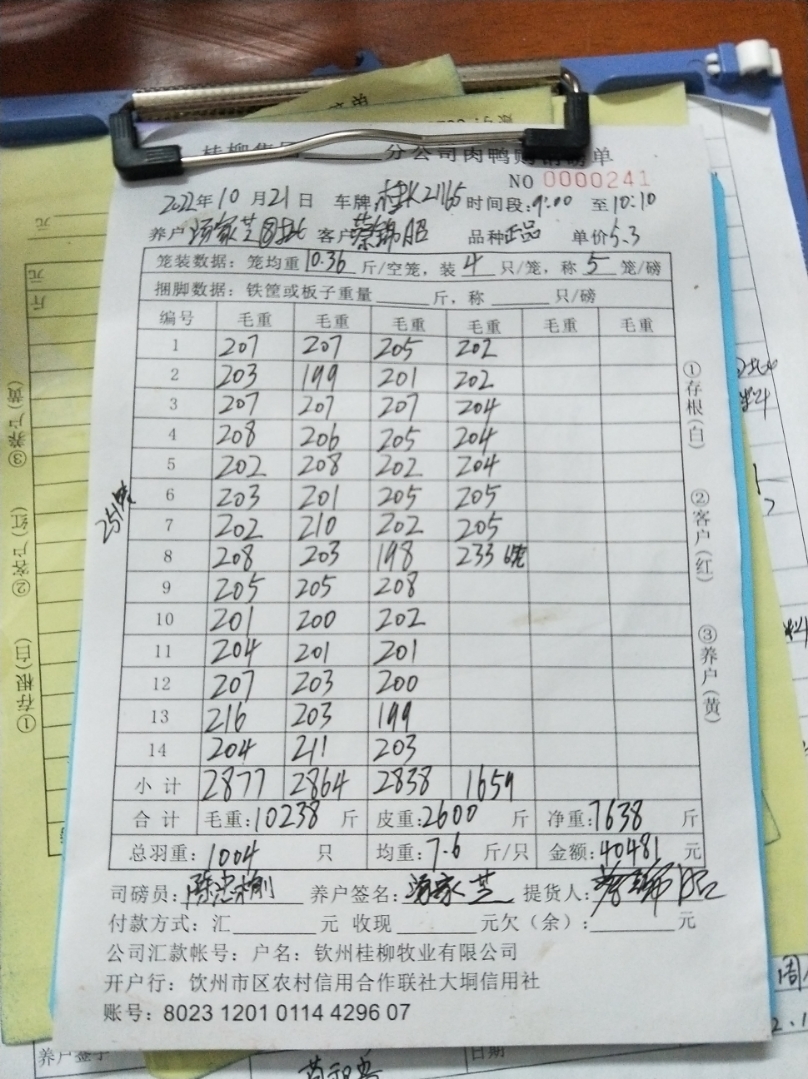 桂柳集团 分公司肉鸭购销磅单
NO 0000241
2022年10月21日 车牌桂K21165 时间段:9:00 至10:10
养户汤家芝 客户蔡锦昭 品种正品 单价5.3
笼装数据:笼均重10.36斤/空笼,装4只/笼,称5笼/磅
捆脚数据:铁筐或板子重量 斤,称 只/磅
编号 毛重 毛重 毛重 毛重 毛重 毛重
1 207 207 205 202
2 203 199 201 202
3 207 207 207 204
4 208 206 205 204
5 202 208 202 204
6 203 201 205 205
7 202 210 202 205
8 208 203 198 233 6笼
9 205 205 208
10 201 200 202
11 204 201 201
12 207 203 200
13 216 203 199
14 204 211 203
小计 2877 2864 2838 1659
合计 毛重:10238斤 皮重:2600斤 净重:7638斤
总羽重:1004只 均重:7.6斤/只 金额:40481元
司磅员: 养户签名:汤家芝 提货人:蔡锦昭
付款方式:汇 元 收现 元欠(余): 元
公司汇款帐号:户名:钦州桂柳牧业有限公司
开户行:饮州市区农村信用合作联社大垌信用社
账号:8023 1201 0114 4296 07
251笼
①存根(白) ②客户(红) ③养户(黄)
①存根(白) ②客户(红) ③养户(黄)
元
元
斤
养户签字
日期